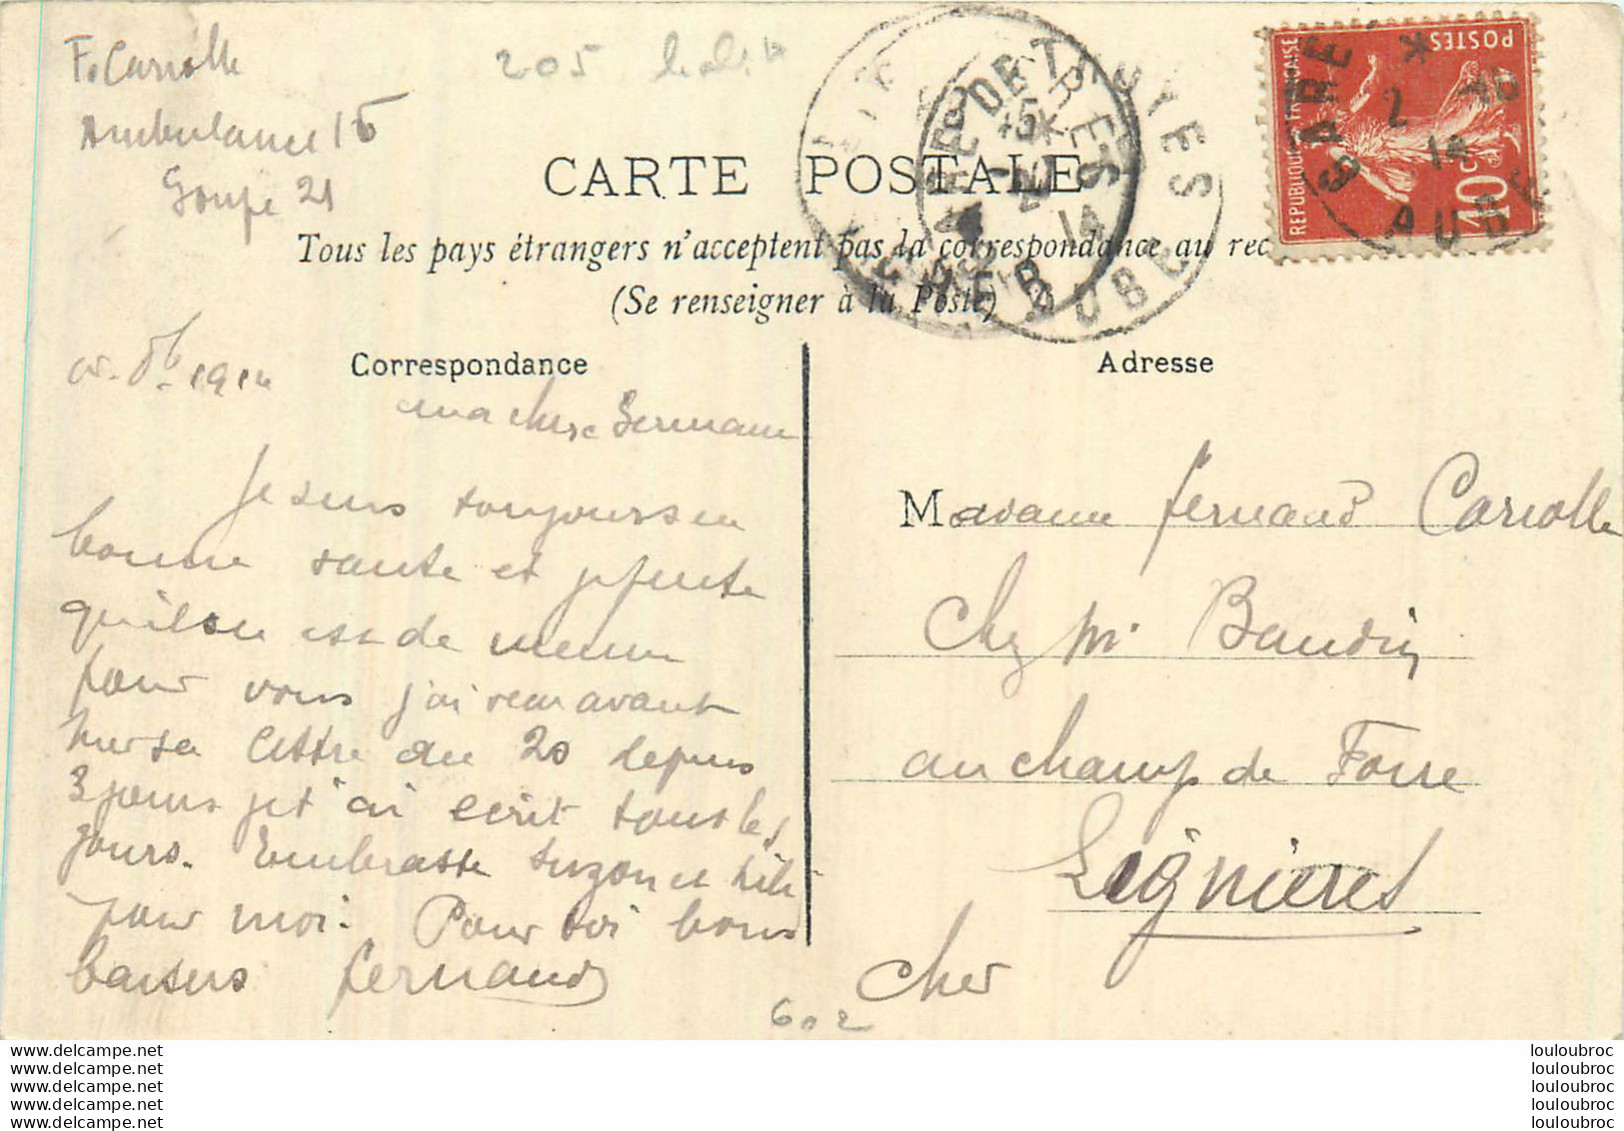 F. Carrolle
205
Ambulance 15
Goupe 21
CARTE POSTALE
Tous les pays étrangers n'acceptent pas la correspondance au rec
(Se renseigner à la Poste)
GARE DE TROYES
AUBE
CHER
POSTES
REPUBLIQUE FRANÇAISE
10c
Correspondance
Adresse
1914
ma chere Germaine
Je suis toujours en
bonne sante et
qu'il en est de meme
pour vous j'ai recu avant
hier ta lettre du 20 depuis
3 jours je t'ai ecrit tous les
jours. Embrasse Suzon et
pour moi. Pour toi bons
baisers Fernand
Madame Fernand Carrolle
Chez Mr Baudin
au champ de Foire
Lignieres
Cher
602
www.delcampe.net
www.delcampe.net
www.delcampe.net
www.delcampe.net
www.delcampe.net
louloubroc
louloubroc
louloubroc
louloubroc
louloubroc